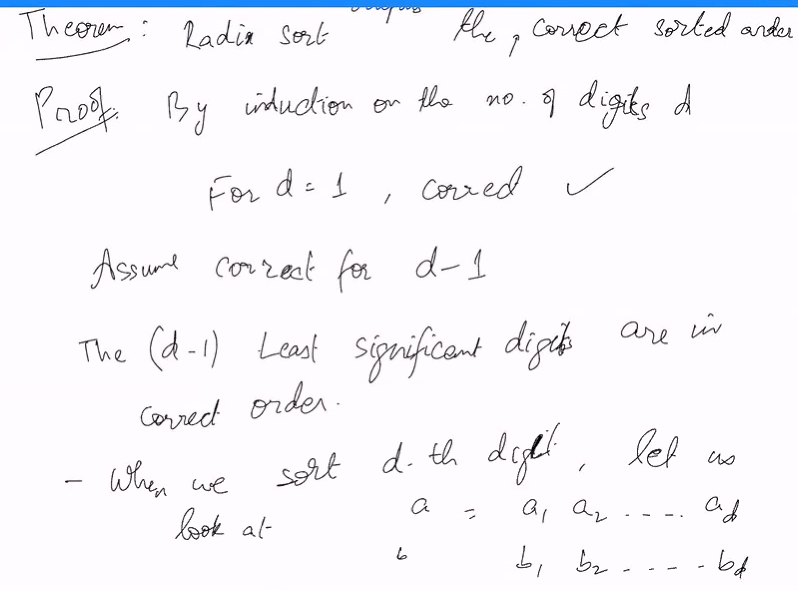 Theorem : Radix sort the, correct sorted order
Proof. By induction on the no. of digits d
For d = 1 , correct ✓
Assume correct for d-1
The (d-1) Least significant digits are in
correct order.
- When we sort d-th digit, let us
look at a = a1 a2 ..... ad
b b1 b2 ..... bd